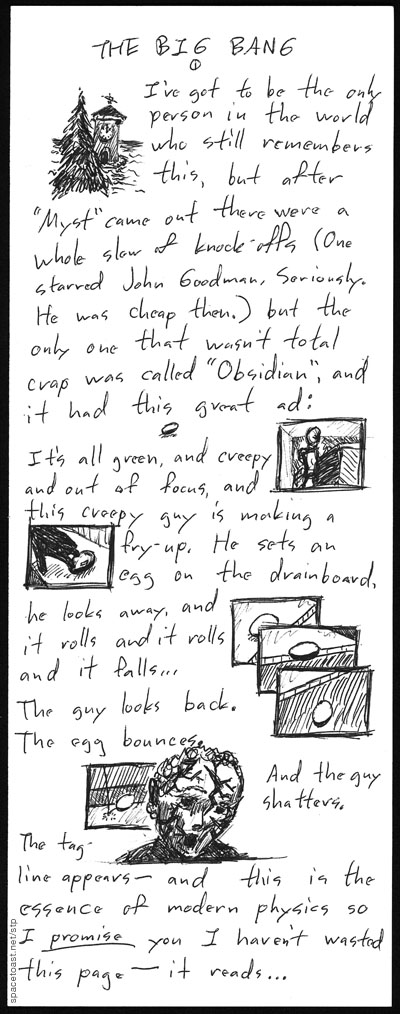 THE BIG BANG
①
I've got to be the only
person in the world
who still remembers
this, but after
"Myst" came out there were a
whole slew of knock-offs (One
starred John Goodman. Seriously.
He was cheap then.) but the
only one that wasn't total
crap was called "Obsidian", and
it had this great ad:
It's all green, and creepy
and out of focus, and
this creepy guy is making a
fry-up. He sets an
egg on the drainboard,
he looks away, and
it rolls and it rolls
and it falls...
The guy looks back.
The egg bounces.
And the guy
shatters.
The tag-
line appears— and this is the
essence of modern physics so
I promise you I haven't wasted
this page — it reads...
spacetoast.net/stp